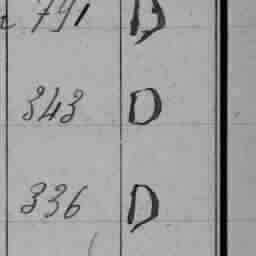 791 D
343 D
336 D